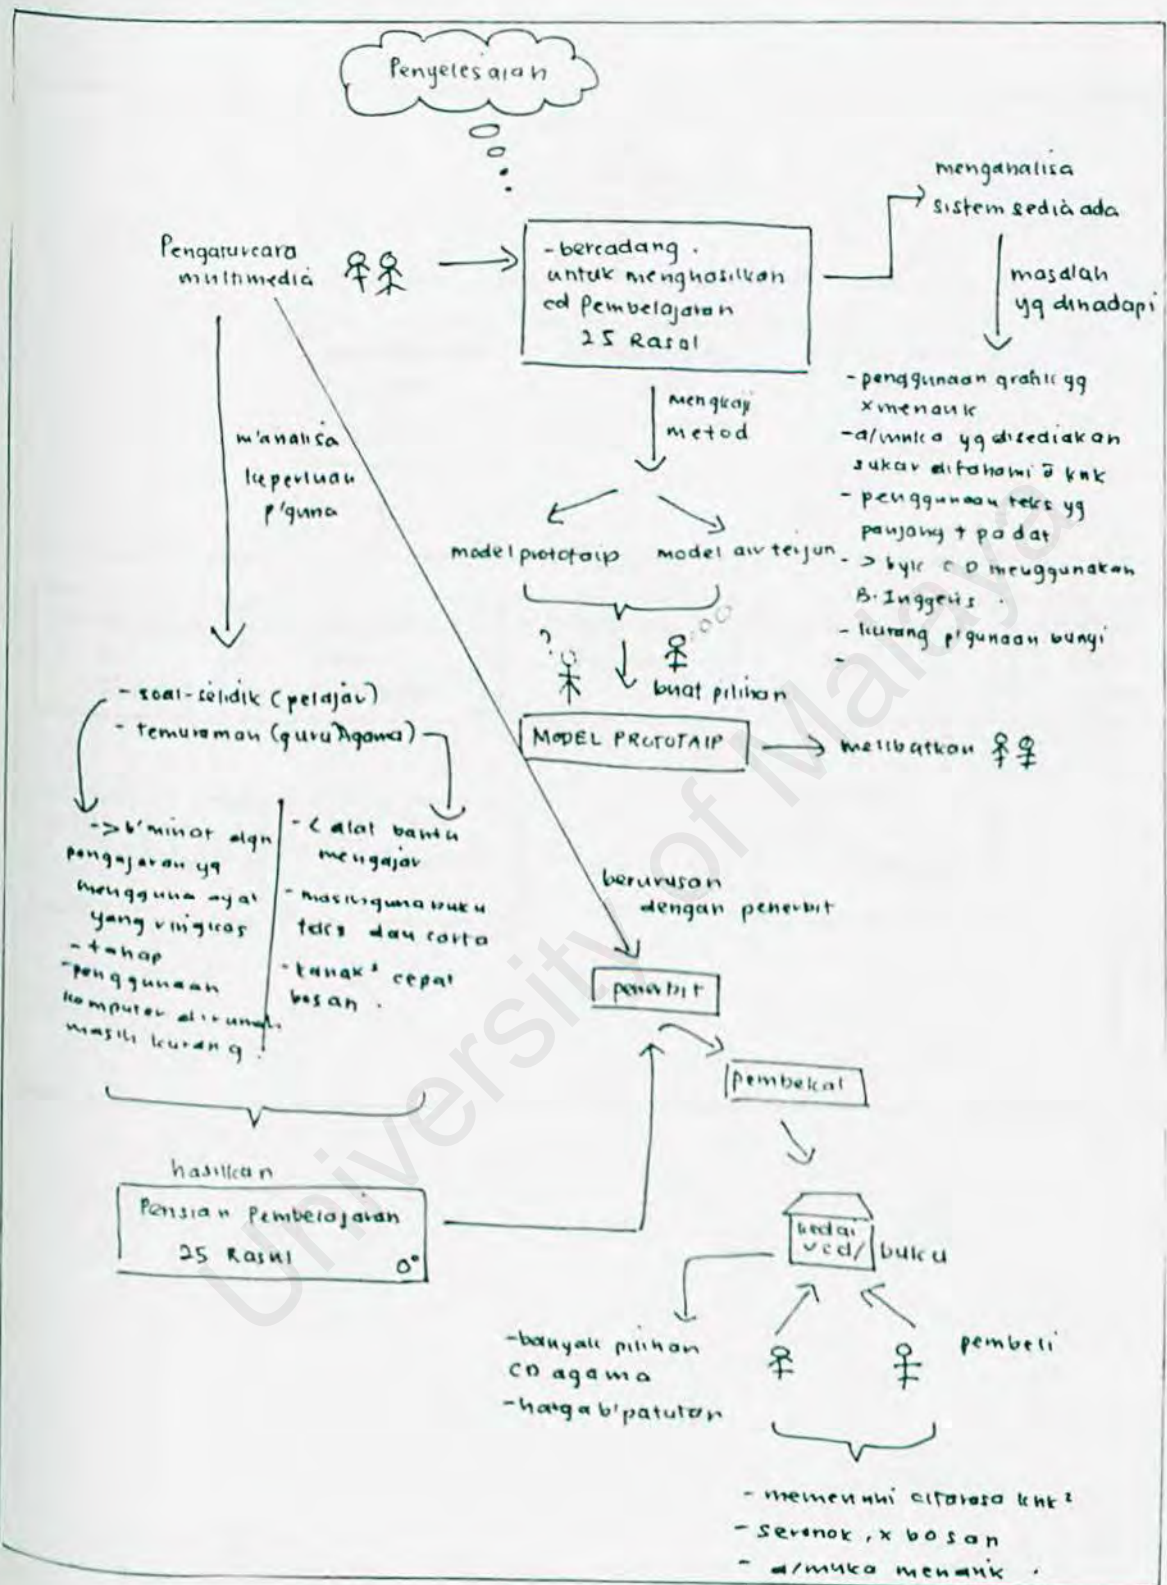 Penyelesaian
Pengaturcara
multimedia
- bercadang .
untuk menghasilkan
cd Pembelajaran
25 Rasul
menganalisa
sistem sedia ada
masalah
yg dihadapi
- penggunaan grafik yg
x menarik
- a/muka yg disediakan
sukar difahami knk
- penggunaan teks yg
panjang + padat
- > byk CD menggunakan
B. Inggeris .
- kurang p'gunaan bunyi
-
mengkaji
metod
model prototaip
model air terjun
?
buat pilihan
MODEL PROTOTAIP
melibatkan
m'analisa
keperluan
p'guna
- soal-selidik (pelajar)
- temuramah (guru Agama)
-> b'minat dgn
pengajaran yg
mengguna ayat
yang ringkas
- tahap
- penggunaan
komputer dirumah
masih kurang .
- < alat bantu
mengajar
- masih guna buku
teks dan carta
- kanak² cepat
bosan .
berurusan
dengan penerbit
penerbit
pembekal
hasilkan
Perisian Pembelajaran
25 Rasul
kedai
vcd/ buku
- banyak pilihan
CD agama
- harga b'patutan
pembeli
- memenuhi citarasa knk²
- seronok, x bosan
- a/muka menarik .
University of Malaya